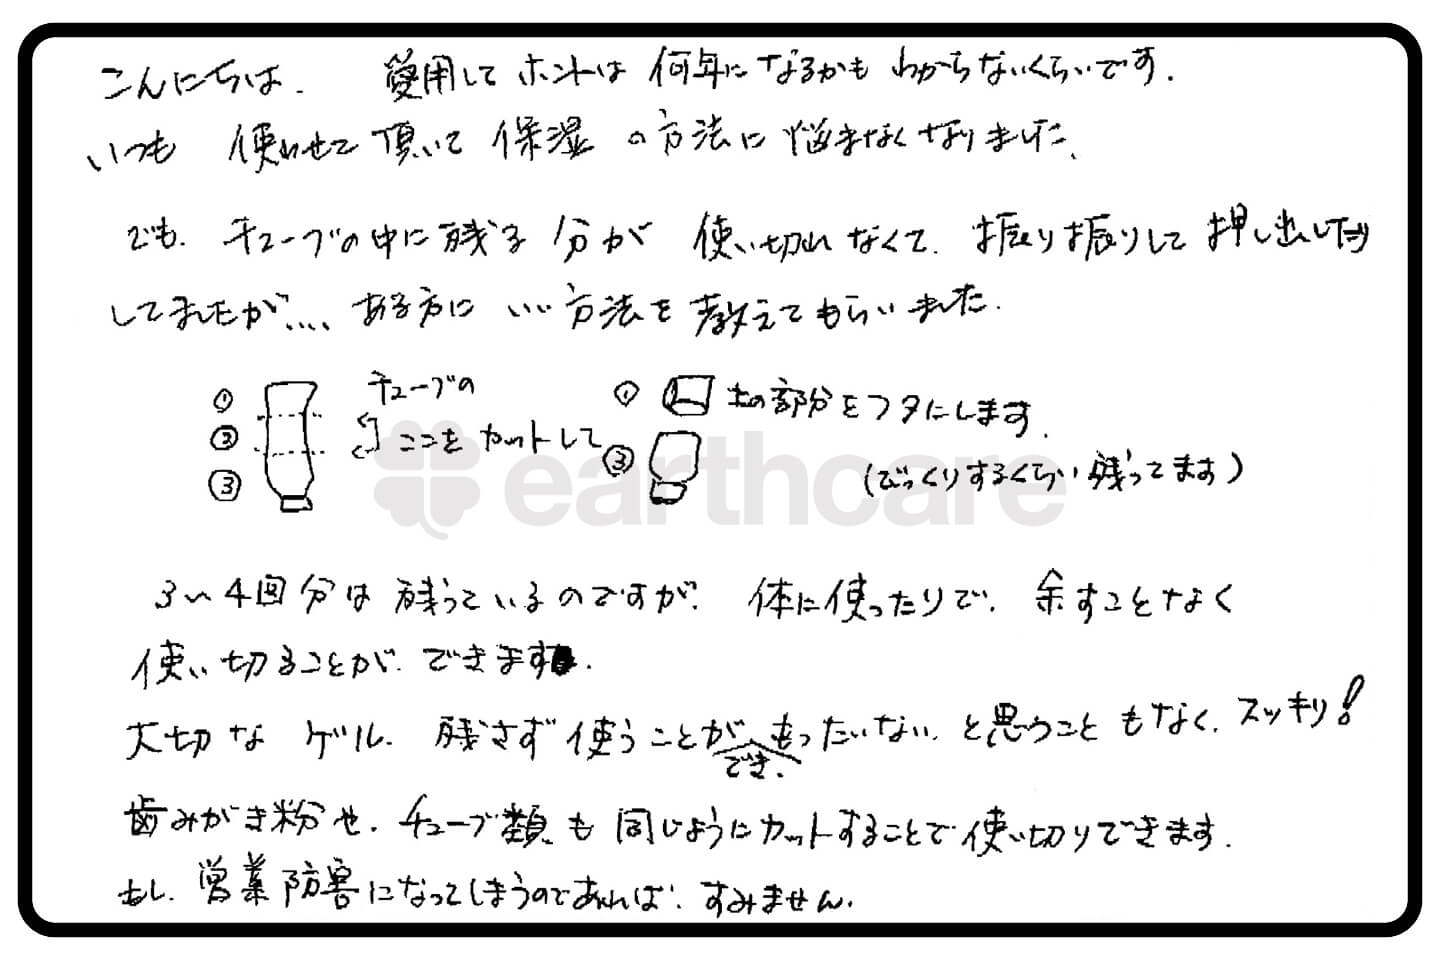 こんにちは. 愛用して ホントは 何年に なるかも わからないくらいです.
いつも 使わせて 頂いて 保湿 の方法に 悩まなくなりました.
でも. チューブの中に残る 分が 使い切れ なくて. 振り振りして 押し出したり
してましたが.... ある方に いい方法を 教えてもらいました.
① ② ③
チューブの
ここを カットして
① 上の部分をフタにします.
③
(びっくりするくらい 残ってます)
earthcare
3〜4回分は 残っているのですが. 体に使ったりで. 余すことなく
使い切ることが. できます.
大切な ゲル. 残さず 使うことが でき. もったいない. と思うこと もなく. スッキリ!
歯みがき粉や. チューブ類も 同じようにカットすることで 使い切りできます.
もし. 営業防害になってしまうのであれば. すみません.